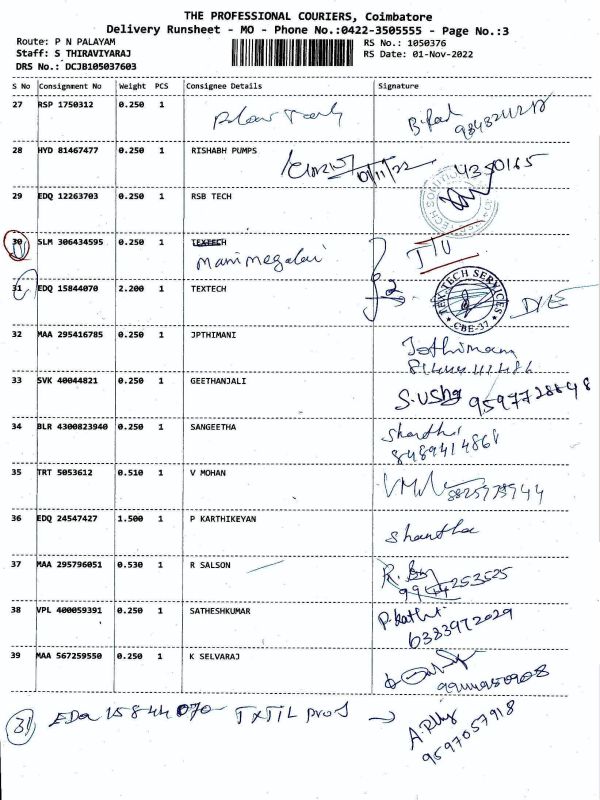 THE PROFESSIONAL COURIERS, Coimbatore
Delivery Runsheet - MO - Phone No.:0422-3505555 - Page No.:3
Route: P N PALAYAM
Staff: S THIRAVIYARAJ
DRS No.: DCJB105037603
RS No.: 1050376
RS Date: 01-Nov-2022
S No Consignment No Weight PCS Consignee Details Signature
27 RSP 1750312 0.250 1
28 HYD 81467477 0.250 1 RISHABH PUMPS 01/11/22 4350165
29 EDQ 12263703 0.250 1 RSB TECH
30 SLM 306434595 0.250 1 TEXTECH
Manimegalai
31 EDQ 15844070 2.200 1 TEXTECH 2 TEX-TECH SERVICES CBE-37
32 MAA 295416785 0.250 1 JPTHIMANI Jothimani
33 SVK 40044821 0.250 1 GEETHANJALI S.Usha 9597728848
34 BLR 4300823940 0.250 1 SANGEETHA Shanthi
8489414868
35 TRT 5053612 0.510 1 V MOHAN
36 EDQ 24547427 1.500 1 P KARTHIKEYAN Shantha
37 MAA 295796051 0.530 1 R SALSON
9944253525
38 VPL 400059391 0.250 1 SATHESHKUMAR
6383972029
39 MAA 567259550 0.250 1 K SELVARAJ
31 EDQ 15844070
9597057918